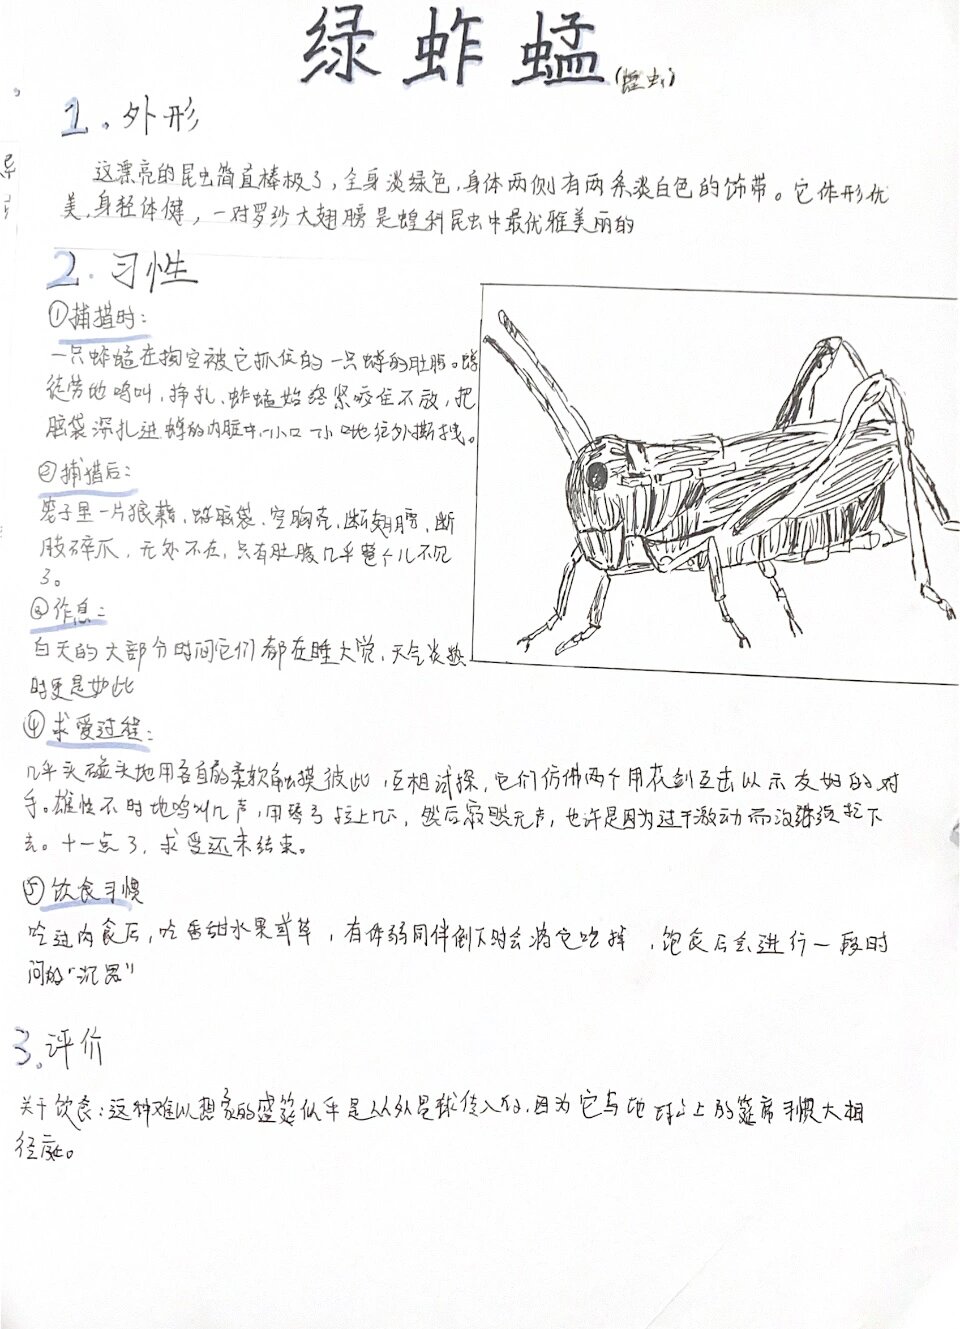 绿蚱蜢(蝗虫)
1.外形
这漂亮的昆虫简直棒极了,全身淡绿色,身体两侧有两条淡白色的饰带。它体形优
美,身轻体健,一对罗纱大翅膀是蝗科昆虫中最优雅美丽的
2.习性
①捕猎时:
一只蚱蜢在掏空被它抓住的一只蝉的肚肠。蝉
徒劳地鸣叫,挣扎,蚱蜢始终紧咬住不放,把
脑袋深扎进蝉的内脏中,一小口一小口地往外撕拽。
②捕猎后:
笼子里一片狼藉,蝉脑袋,空胸壳,断翅膀,断
肢碎爪,无处不在,只有肚腹几乎整个儿不见
了。
③作息:
白天的大部分时间它们都在睡大觉,天气炎热
时更是如此
④求爱过程:
几乎头碰头地用各自的柔软触摸彼此,互相试探,它们仿佛两个用花剑互击以示友好的对
手。雄性不时地鸣叫几声,用琴弓拉上几下,然后寂然无声,也许是因为过于激动而没继续拉下
去。十一点了,求爱还未结束。
⑤饮食习惯
吃过肉食后,吃香甜水果或草,有体弱同伴倒下时会将它吃掉,饱食后会进行一段时
间的"沉思"
3.评价
关于饮食:这种难以想象的盛筵似乎是从外星球传入的,因为它与地球上的筵席习惯大相
径庭。